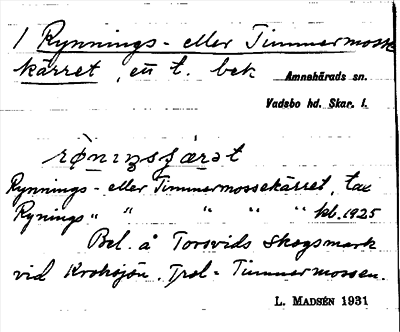 1 Rynnings- eller Timmermosse
kärret, ett t. bek
Amnehärads sn.
Vadsbo hd. Skar. l.
rö̀niŋsçær̀ət
Rynnings- eller Timmermossekärret, tax
Rynings " " " " " kb. 1925
Bel. å Torsvids skogsmark
vid Kroksjön. Trol = Timmermossen.
L. MADSÉN 1931